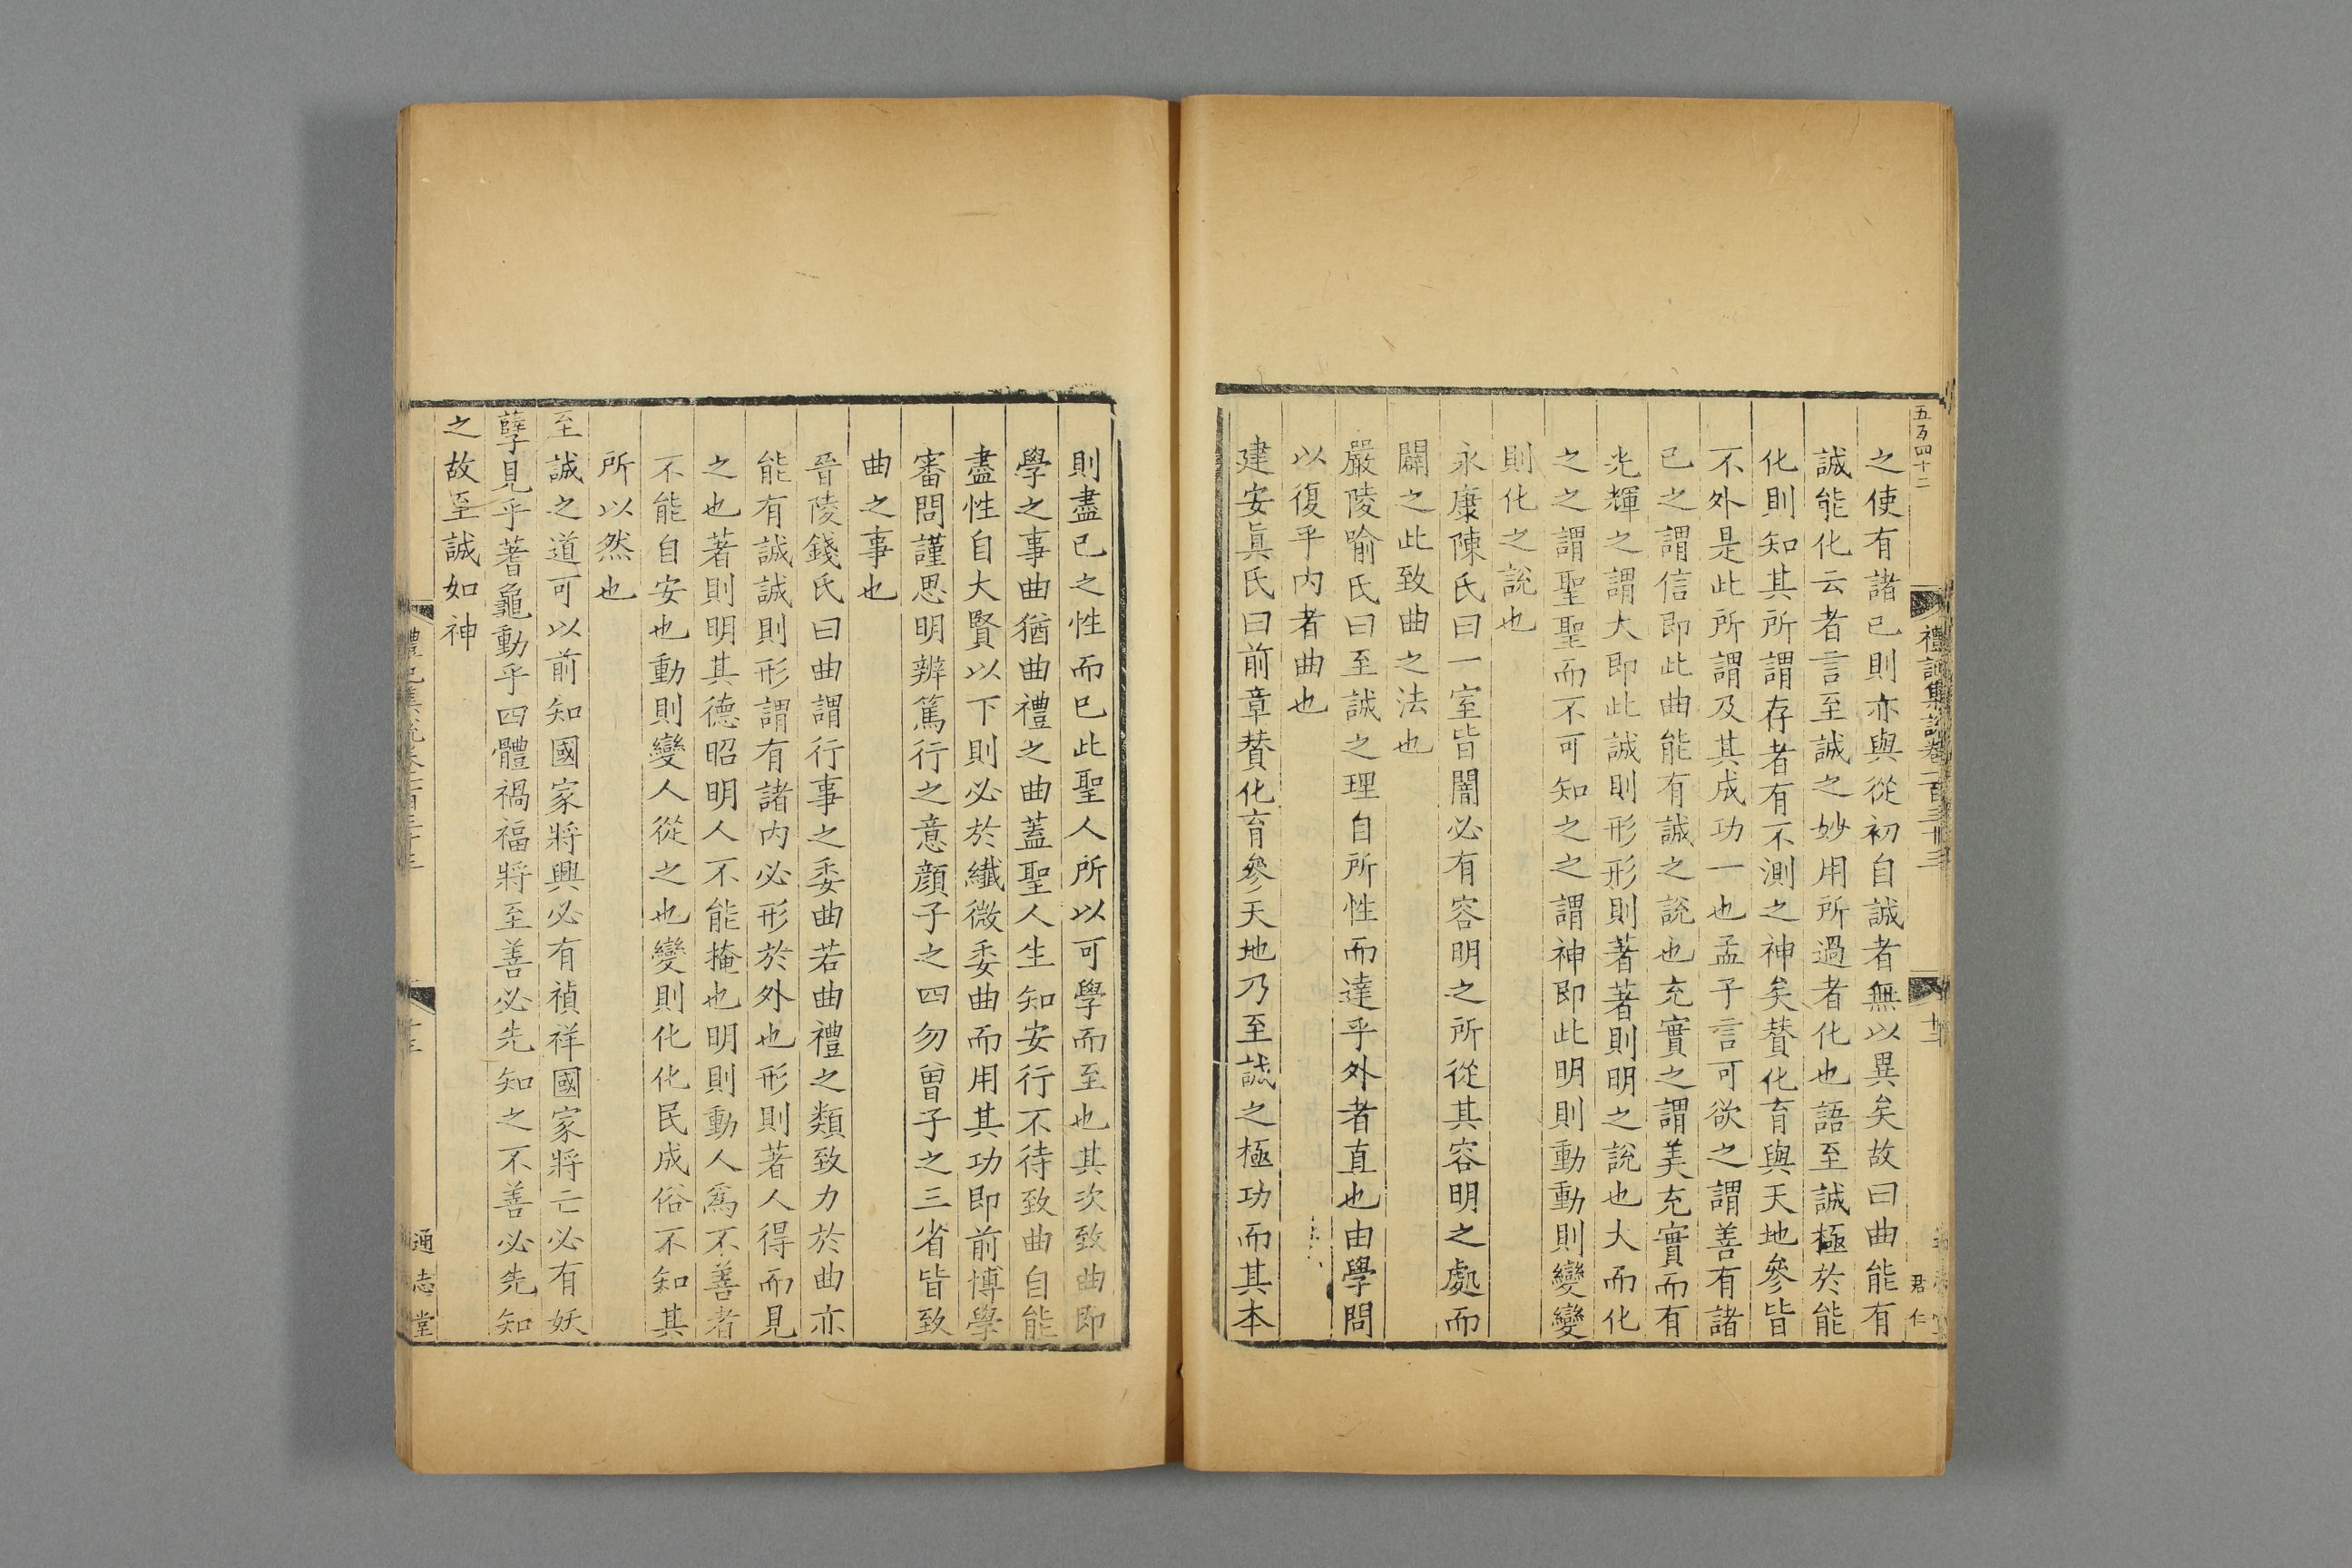 五万四十二
禮記集說卷一百三十三
君仁
之使有諸已則亦與從初自誠者無以異矣故曰曲能有
誠能化云者言至誠之妙用所過者化也語至誠極於能
化則知其所謂存者有不測之神矣賛化育與天地參皆
不外是此所謂及其成功一也孟子言可欲之謂善有諸
已之謂信即此曲能有誠之說也充實之謂美充實而有
光輝之謂大即此誠則形形則著著則明之說也大而化
之之謂聖聖而不可知之之謂神即此明則動動則變變
則化之說也
永康陳氏曰一室皆闇必有容明之所從其容明之處而
闢之此致曲之法也
嚴陵喻氏曰至誠之理自所性而達乎外者直也由學問
以復乎内者曲也
建安眞氏曰前章賛化育參天地乃至誠之極功而其本
則盡已之性而已此聖人所以可學而至也其次致曲即
學之事曲猶曲禮之曲蓋聖人生知安行不待致曲自能
盡性自大賢以下則必於纎微委曲而用其功即前博學
審問謹思明辨篤行之意顏子之四勿曾子之三省皆致
曲之事也
晉陵錢氏曰曲謂行事之委曲若曲禮之類致力於曲亦
能有誠誠則形謂有諸内必形於外也形則著人得而見
之也著則明其德昭明人不能掩也明則動人爲不善者
不能自安也動則變人從之也變則化化民成俗不知其
所以然也
至誠之道可以前知國家將興必有禎祥國家將亡必有妖
孽見乎蓍龜動乎四體禍福將至善必先知之不善必先知
之故至誠如神
通志堂